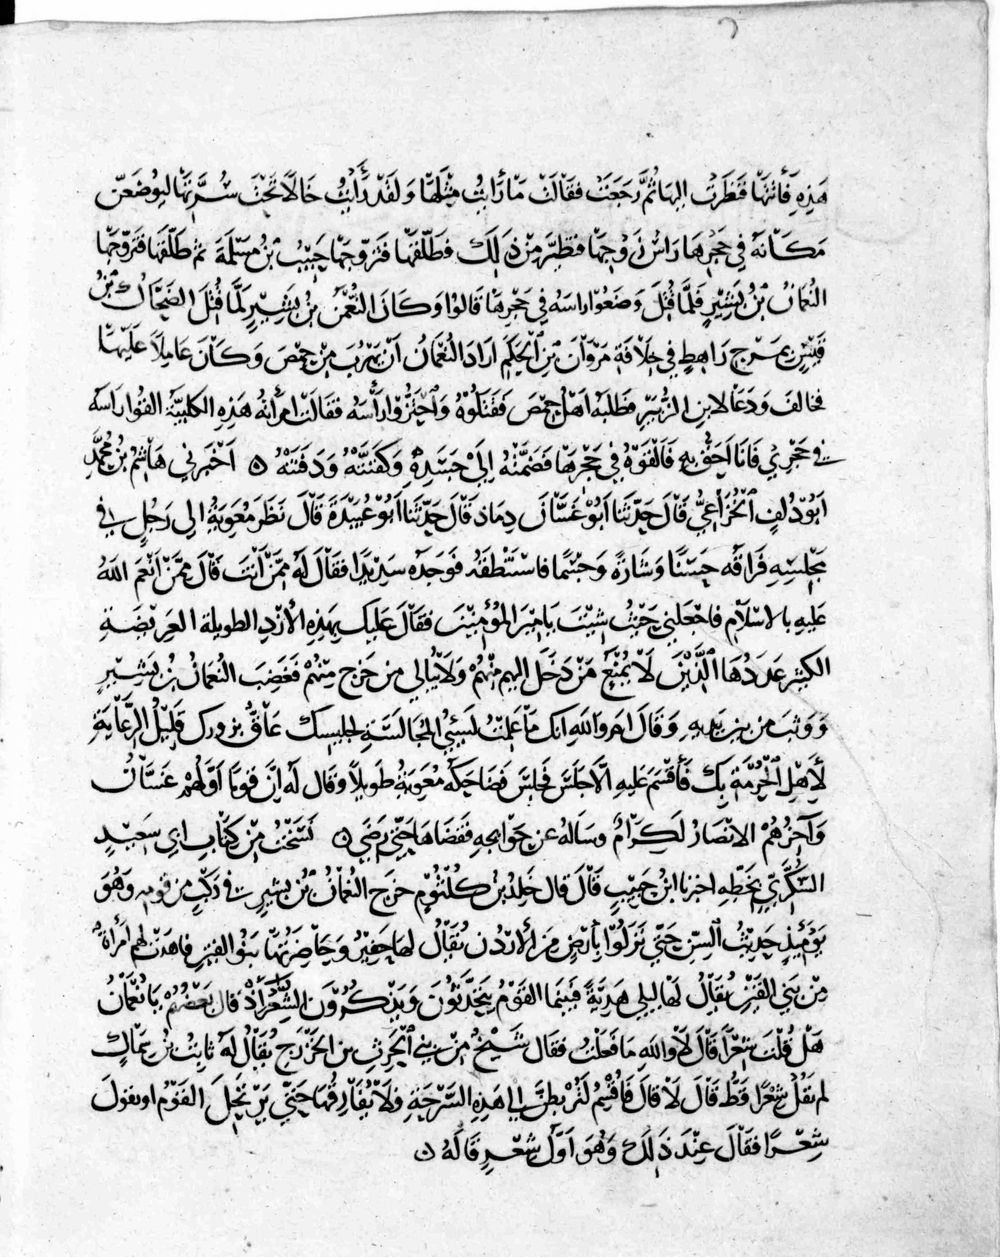 هَذِهِ فَأَتَتْهَا فَنَظَرَتْ اِلَيهَا ثُمَّ رَجَعَتْ فَقَالَتْ مَا رَاَيْتُ مِثْلَهَا وَلَقَدْ رَأَيْتُ خَالًا تَحْتَ سُرَّتِهَا ليُوضَعَنّ
مَكَانَهُ في حَجْرِهَا رَاسُ زَوْجِهَا فَتَطَيَّرَ مِنْ ذَلِكَ فَطَلّقَهَا فَتَزَوَّجَهَا حَبِيْبُ بْنُ مَسْلَمَةَ ثم طَلّقَهَا فَتزوّجَهَا
النُعمَانُ بْنُ بَشِيْرٍ فَلَمَّا قُتِلَ وَضَعُوْا رَاسَهُ في حَجْرِهَا قَالوُا وَكَانَ النُعْمٰنُ بْنُ بَشِيْرٍ لَمَّا قُتِلَ الضَّحَّاكُ بْنُ
قَيْسٍ بِمَرْجِ رَاهِطٍ في خِلَافَةِ مَرْوَانَ بْنِ الْحَكَمِ ارَادَ النُعْمَانُ اَنْ يَهْرُبَ مِنْ حِمْصَ وَكَانَ عَامِلًا عَلَيْهَا
فخالفَ وَدَعَا لابن الزُبَيْرِ فَطَلَبَهُ اَهْلُ حِمْصَ فَقَتَلُوْهُ وَاحْتَزُّوْا رَأْسَهُ فقَالَتْ امرأتُهُ هَذِهِ الكلبِيَّة القُوْا رَاسَهُ
في حَجْرِيْ فَانَا اَحَقُّ بِهِ فَالْقَوْهُ فِي حَجْرِهَا فَضَمَّتْهُ اِلَىْ جَسَدِهِ وَكَفَّنَتْهُ وَدَفَنَتْهُ ۝ اَخْبَرني هَاشِمُ بْنُ مُحَمَّدٍ
اَبُوْ دُلَفٍ الْخُزَاعِيُّ قَالَ حَدّثَنَا اَبُوْ غَسَّانَ دِمَاذ قَالَ حَدَّثَنَا اَبُوْ عُبَيْدَةَ قَالَ نَظَرَ مُعٰوِيَةُ الى رَجُلٍ في
مَجْلِسِهِ فَرَاقَه حُسْنًا وَشَارَةً وَجِسْمًا فاسْتَنْطَقَهُ فَوَجَدَهُ سَدِيْدًا فقَالَ لَهُ مِمَّنْ اَنْتَ قَالَ مِمَّنْ اَنْعَمَ اللهُ
عَليهِ بالاسْلَام فاجْعَلْني حَيْثُ شِئْتَ يَا مِيْرَ المُؤْمِنِيْنَ فقَالَ عَليْكَ بِهَذِهِ الأزْدِ الطويلة العَرِيْضَةِ
الكثِيْرِ عَدَدُهَا الَّذِيْنَ لَا يُمْنَعُ مَنْ دَخَلَ اليهم مِنْهُمْ وَلَا يُبَالي من خَرَجَ مِنْهُمْ فَغَضِبَ النُعمَانُ بْنُ بَشِيْرٍ
وَوَثَبَ من بين يَدَيهِ وَقَالَ اما وَاللهِ انك مَا عَلِمْتُ لَسَيّئُ المُجالَسَةِ لجليسِك عَاقٌّ بزورك قَلِيْلُ الرِّعَايَةِ
لأهْلِ الْحُرْمَةِ بِكَ فَأَقْسَمَ عَلَيهِ الَّا جَلَسَ فَجَلَسَ فَضَاحَكَهُ مُعٰوِيَةُ طَوِيْلًا وقَال لَهُ اِنَّ قومًا اَوّلُهُمْ غَسَّانُ
وَآخِرُهُمْ الانْصَارُ لَكِرَامٌ وسَالهُ عن حَوَائجِهِ فَقَضَاهَا حَتّى رَضِيَ ۝ نَسَخْتُ مِنْ كِتَابِ ابي سَعِيْدٍ
السُّكَّرِيّ بخَطّهِ اخبرنا ابْنُ حَبِيْبٍ قَالَ قال خَلِدُ بْنُ كُلْثُوْمٍ خَرجَ النُعْمَانُ بْنُ بشيرٍ في رَكْبٍ مِن قومِهِ وَهُوَ
يَوْمَئِذٍ حَدِيْثُ السِّنّ حَتّى نَزَلُوْا بِأَرْضٍ مِنَ الأرْدُن يُقَالُ لهَا حَفِيْرُ وَحَاضِرَتُهَا بَنُو القَيْن فاهْدَتْ لهُم امْرأةٌ
مِنْ بَني القَيْن يُقَالُ لهَا ليلى هَدِيَّةً فَبَيْنَمَا القَوْمُ يَتَحَدَّثُوْنَ وَيَذْكُرُوْنَ الشُّعَرَآءَ اذْ قال بَعْضُهُمْ يَا نُعْمَانُ
هَلْ قُلْتَ شِعْرًا قَالَ لَا وَاللهِ مَا فَعَلْتُ فقال شَيْخٌ مِنْ بني الْحٰرِثِ بن الخَزْرَجِ يُقَالُ لَهُ ثابتُ بْنُ سِمَاكٍ
لم تقُلْ شِعْرًا قَطُّ قَالَ لَا قَالَ فَاُقْسِمُ لَتُرْبَطَنَّ الى هَذِهِ السَّرْحَةِ وَلَا تُفَارِقُهَا حَتّى يَرْتَحِلَ القَوْمُ او تَقولَ
شِعْرًا فقَالَ عِنْدَ ذَلِكَ وَهُوَ اَوَّلُ شِعْرٍ قَالَهُ ۝